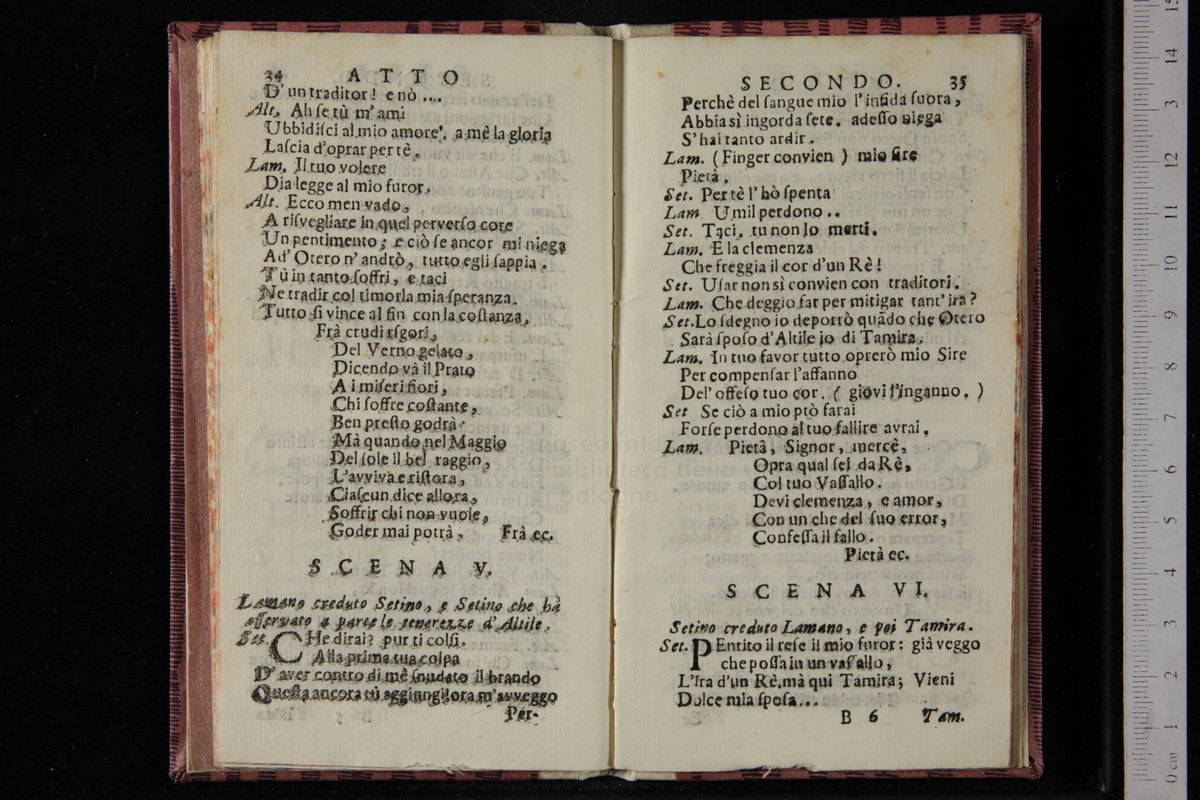 34 ATTO
D'un traditor! e nò ....
Alt. Ah ſe tù m'ami
Ubbidiſci al mio amore, a mè la gloria
Laſcia d'oprar per tè.
Lam. Il tuo volere
Dia legge al mio furor.
Alt. Ecco men vado,
A riſvegliare in quel perverſo core
Un pentimento; e ciò ſe ancor mi niega
Ad' Otero n'andrò, tutto egli ſappia.
Tù in tanto ſoffri, e taci
Ne tradir col timor la mia ſperanza.
Tutto ſi vince al fin con la coſtanza,
Frà crudi rigori,
Del Verno gelato,
Dicendo và il Prato
A i miſeri fiori,
Chi ſoffre coſtante,
Ben preſto godrà
Mà quando nel Maggio
Del ſole il bel raggio,
L'avviva e riſtora,
Ciaſcun dice allora,
Soffrir chi non vuole,
Goder mai potrà. Frà ec.
SCENA V.
Lamano creduto Setino, e Setino che hà
oſſervato a parte le tenerezze d'Altile.
Set. CHe dirai? pur ti colſi.
Alla prima tua colpa
D'aver contro di mè ſnudato il brando
Queſta ancora tù aggiungi! ora m'avveggo
Per-
SECONDO. 35
Perchè del ſangue mio l'infida ſuora,
Abbia sì ingorda ſete. adeſſo niega
S'hai tanto ardir.
Lam. (Finger convien) mio ſire
Pietà.
Set. Per tè l'hò ſpenta
Lam. Umil perdono..
Set. Taci, tu non lo merti.
Lam. E la clemenza
Che freggia il cor d'un Rè!
Set. Uſar non sì convien con traditori.
Lam. Che deggio far per mitigar tant'ira?
Set. Lo ſdegno io deporrò quãdo che Otero
Sarà ſpoſo d'Altile io di Tamira.
Lam. In tuo favor tutto oprerò mio Sire
Per compenſar l'affanno
Del' offeſo tuo cor. (giovi l'inganno.)
Set Se ciò a mio prò farai
Forſe perdono al tuo fallire avrai,
Lam. Pietà, Signor, mercè,
Opra qual ſei da Rè,
Col tuo Vaſſallo.
Devi clemenza, e amor,
Con un che del ſuo error,
Confeſſa il fallo.
Pietà ec.
SCENA VI.
Setino creduto Lamano, e poi Tamira.
Set. PEntito il reſe il mio furor: già veggo
che poſſa in un vaſſallo,
L'ira d'un Rè. mà qui Tamira; Vieni
Dolce mia ſpoſa...
B 6 Tam.